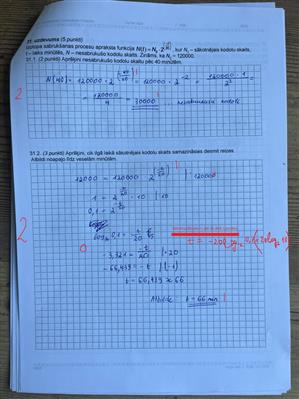 31. uzdevums (5 punkti)
Izotopa sabrukšanas procesu apraksta funkcija N(t) = N₀ · 2^(-t/20), kur N₀ – sākotnējais kodolu skaits,
t – laiks minūtēs, N – nesabrukušo kodolu skaits. Zināms, ka N₀ = 120000.
31.1. (2 punkti) Aprēķini nesabrukušo kodolu skaitu pēc 40 minūtēm.
N(40) = 120000 · 2^(-40/20) = 120000 · 2^-2 = 120000 · 1 / 2² =
2
= 120000 / 4 = 30000 nesabrukuši kodoli
31.2. (3 punkti) Aprēķini, cik ilgā laikā sākotnējais kodolu skaits samazināsies desmit reizes.
Atbildi noapaļo līdz veseliem minūtēm.
12000 = 120000 · 2^(-t/20) | : 120000
1 = 2^(-t/20) · 10 | : 10
0,1 = 2^(-t/20)
2
log₂ 0,1 = -t/20
0
-3,321 = -t/20 | · 20
-66,439 = -t | :(-1)
t = 66,439 ≈ 66
Atbilde t = 66 min